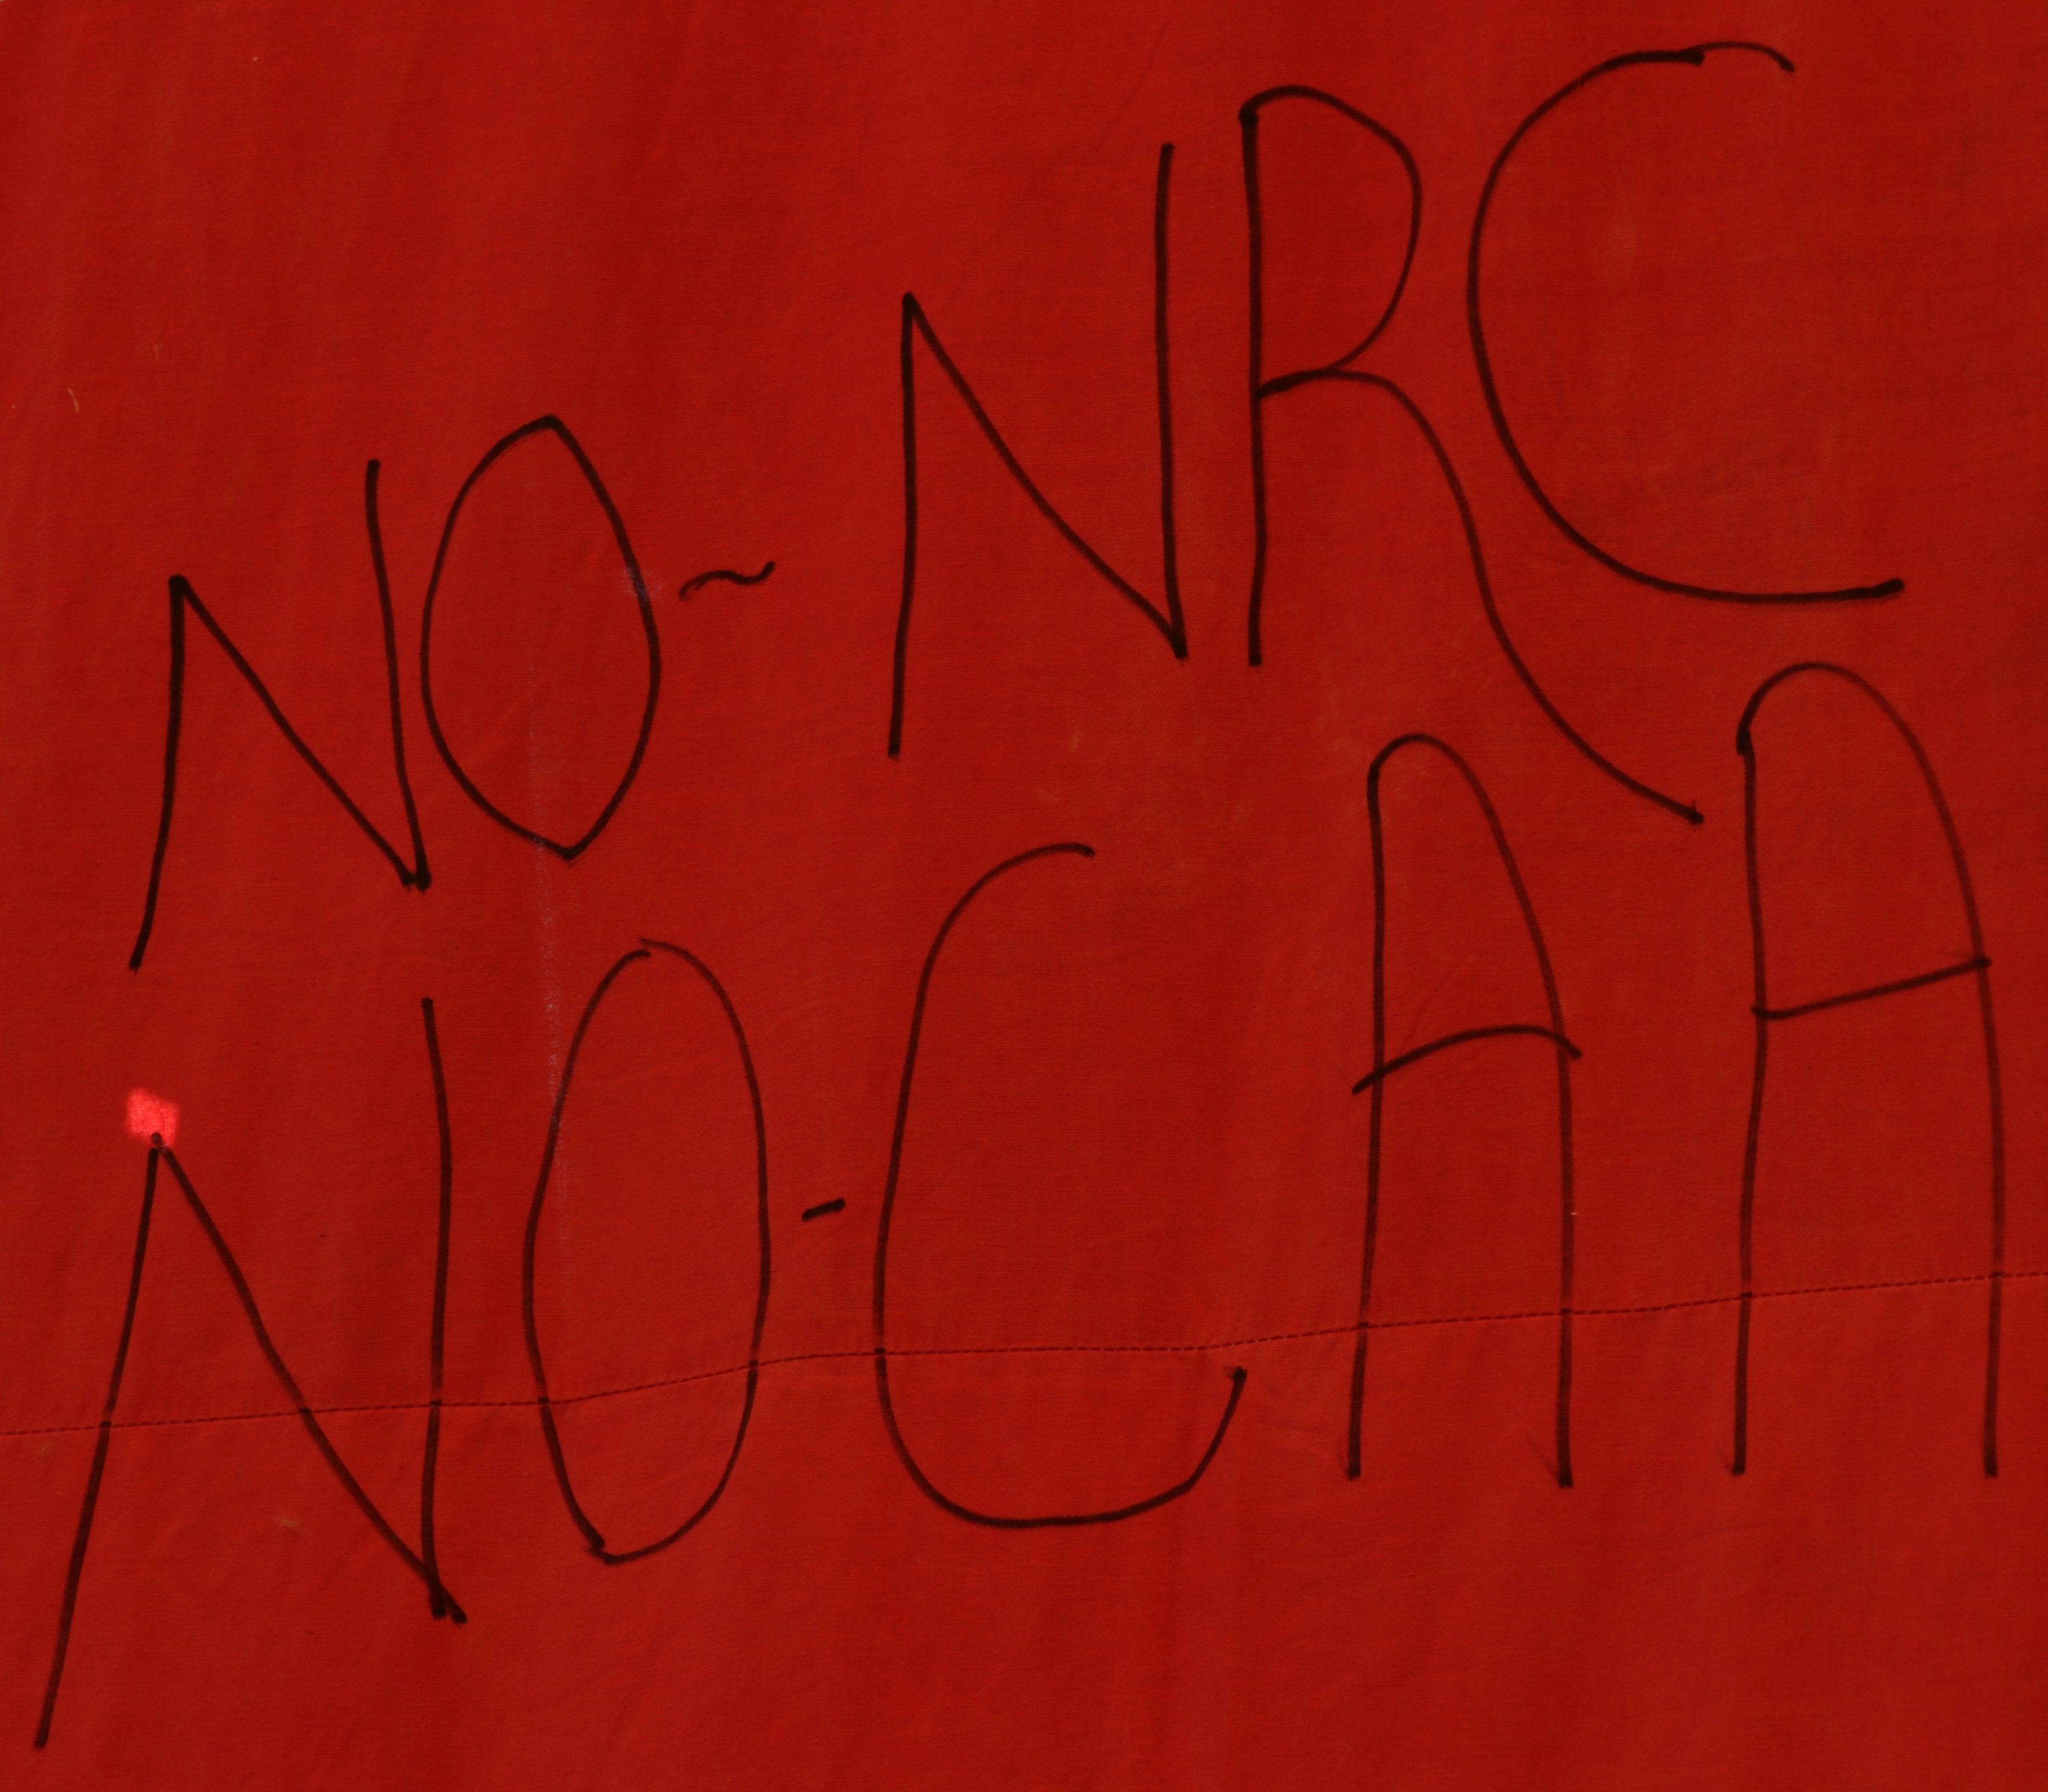 NO-NRC
NO-CAA